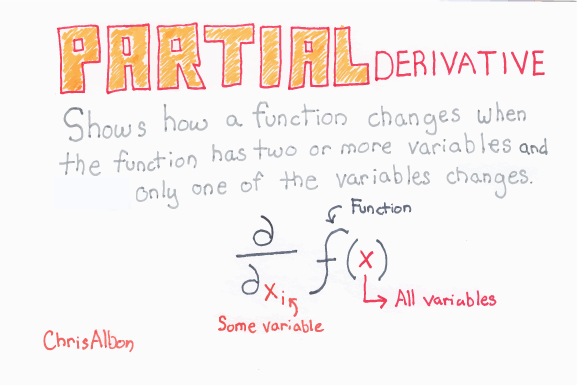 PARTIAL DERIVATIVE
Shows how a function changes when
the function has two or more variables and
only one of the variables changes.
Function
∂
∂xᵢ f(x)
All variables
Some variable
ChrisAlbon